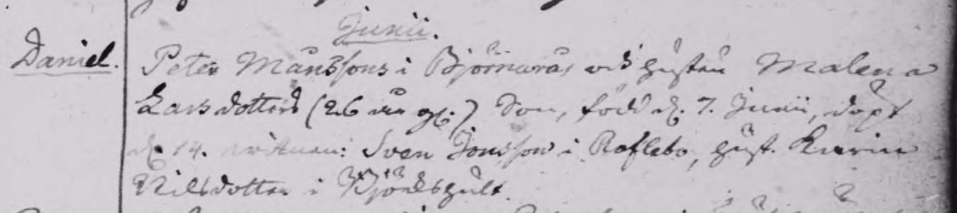 Junii.
Daniel. Peter Månssons i Björnarås och hustrun Malena
Larsdotters (26 år gl:) Son, född d. 7. Junii, döpt
d. 14. wittnen: Sven Jonsson i Roflebo, hust. Karin
Nilsdotter i hult.